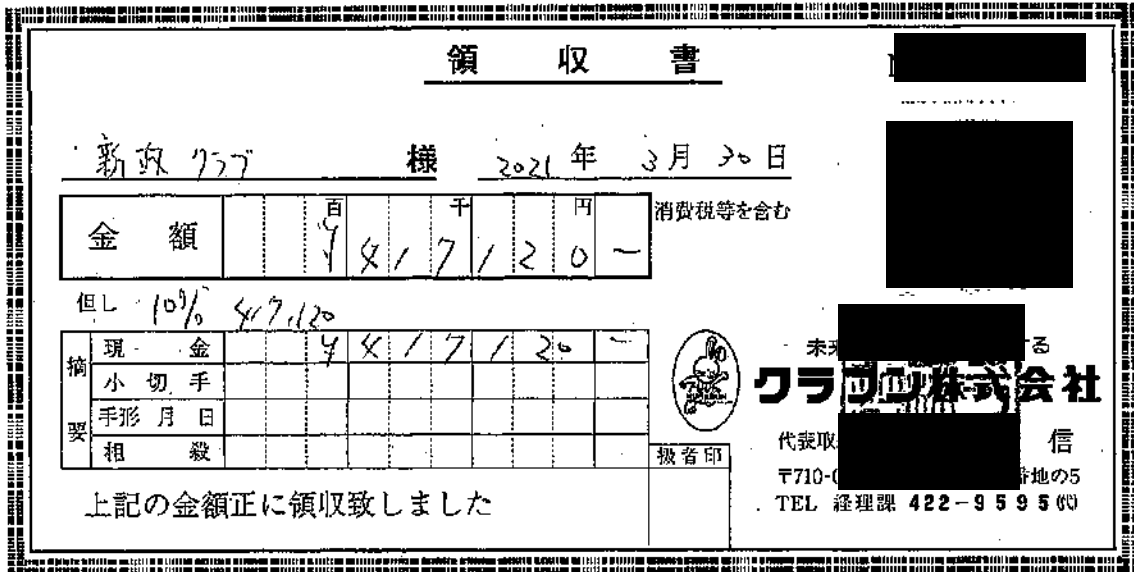 領 収 書
新政クラブ 様 2021年 3月 30日
金 額 百 千 円 ¥417120- 消費税等を含む
但し 10% 417,120
摘要
現 金 ¥417120-
小 切 手
手形 月 日
相 殺
扱者印
上記の金額正に領収致しました
未来 する
クラブン株式会社
代表取 信
〒710-0 番地の5
TEL 経理課 422-9595㈹